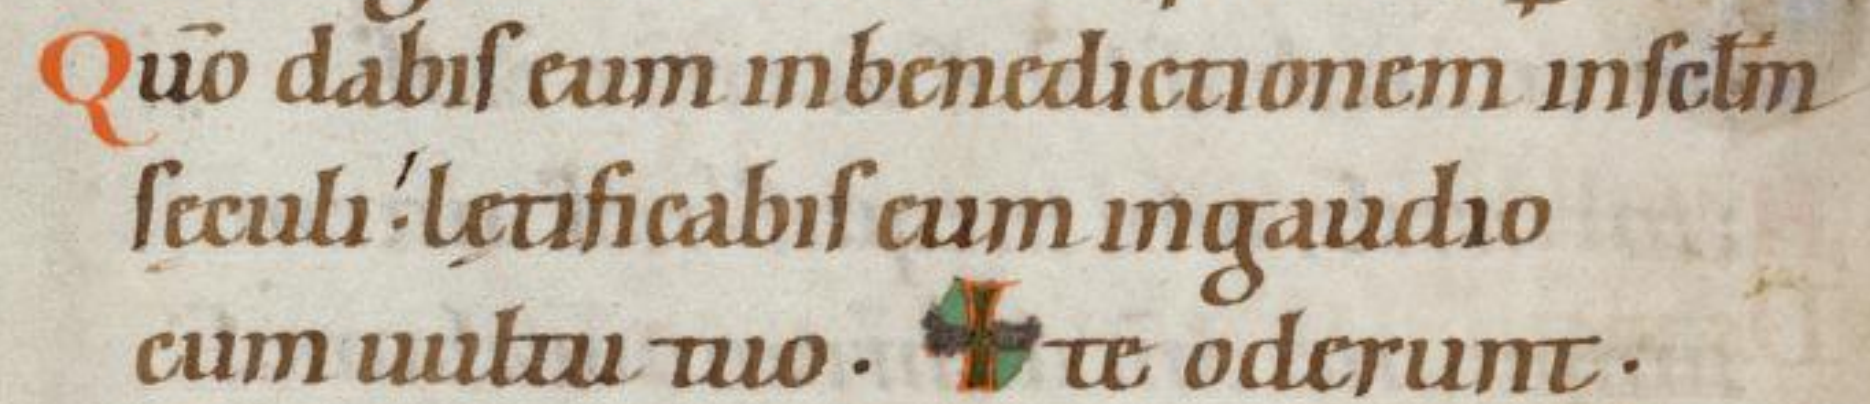 Quō dabiſ eum inbenedictionem inſcl̄m
ſęculi :' lętificabiſ eum ingaudio
cum uultu tuo . I te oderunt .